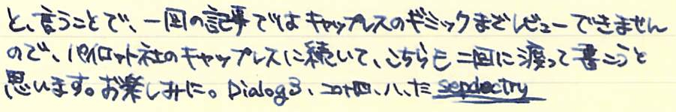 と、言うことで、一回の記事ではキャップレスのギミックまでレビューできません
ので、パイロット社のキャップレスに続いて、こちらも二回に渡って書こうと
思います。お楽しみに。Dialog3、コロ四、ハ、た